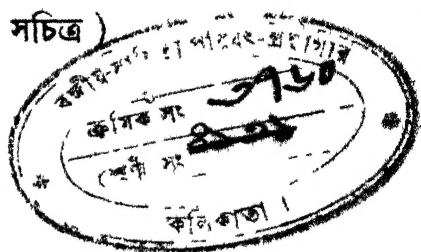 সচিত্র )
বঙ্গীয়-সাহিত্য পরিষৎ-গ্রন্থাগার
ক্রমিক সং
শ্রেণী সং
কলিকাতা ।